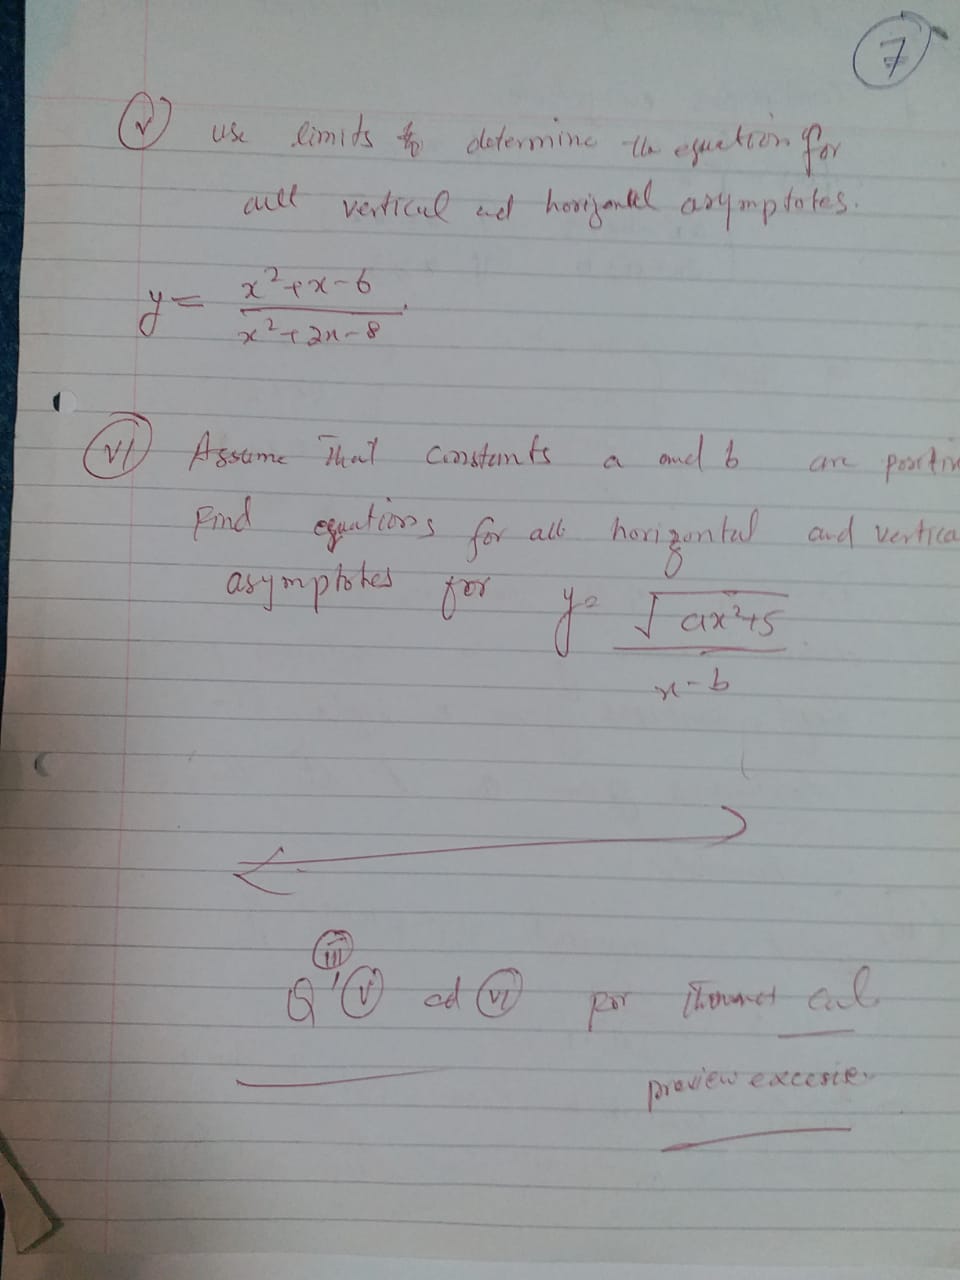 7
(V) use limits to determine the equation for
all vertical and horizontal asymptotes.
y = x²+x-6 / x²+2x-8
(VI) Assume That constants a and b are positiv
Find equations for all horizontal and vertica
asymptotes for y = √ax²+5 / x-b
(III)
Q' (V) ad (VI) for cal
preview excersie